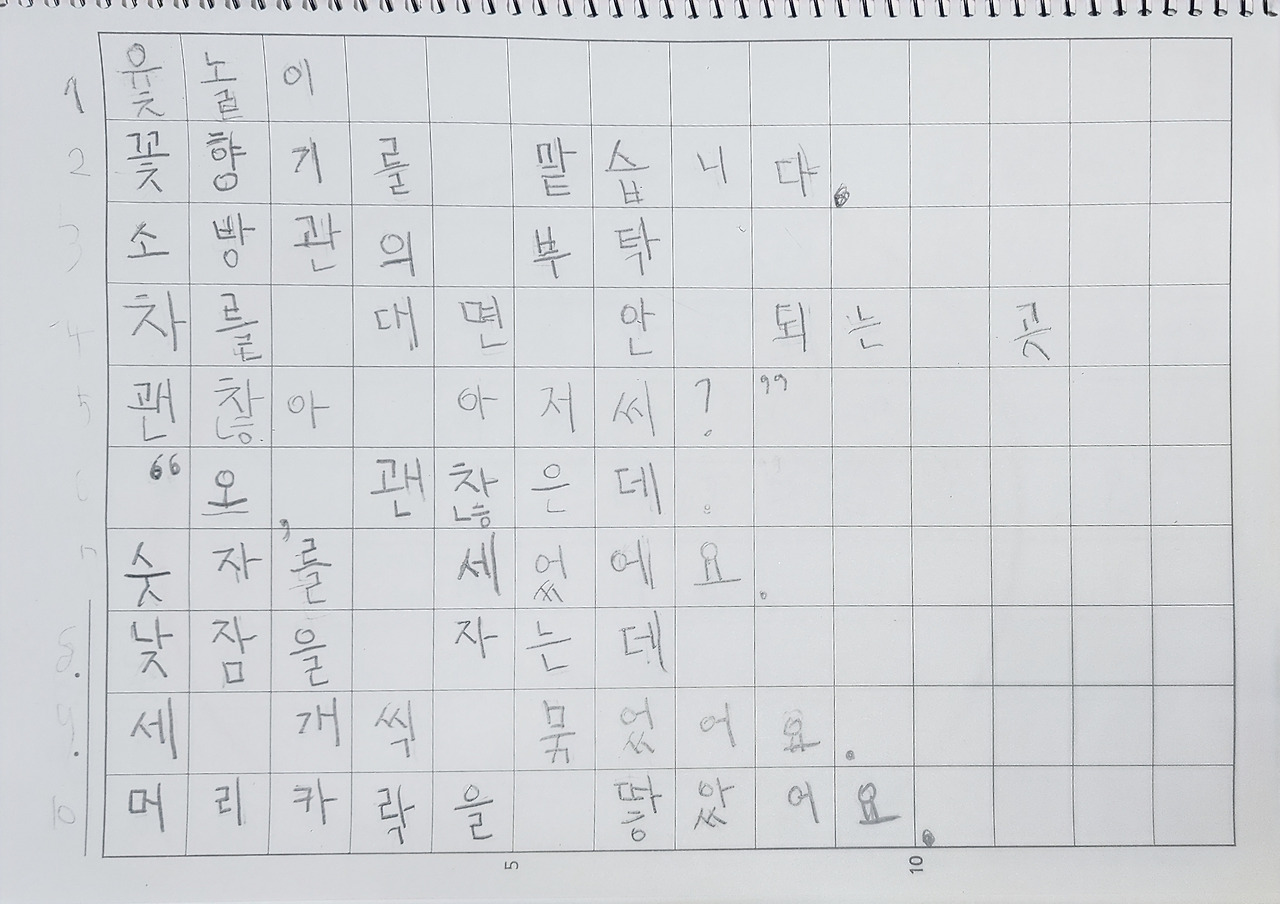 1 윷놀이
2 꽃향기를 맡습니다.
3 소방관의 부탁
4 차를 대면 안 되는 곳
5 괜찮아 아저씨?”
6 “오, 괜찮은데.
7 숫자를 세었에요.
8. 낮잠을 자는데
9. 세 개씩 묶었어요.
10 머리카락을 땋았어요.
5 10